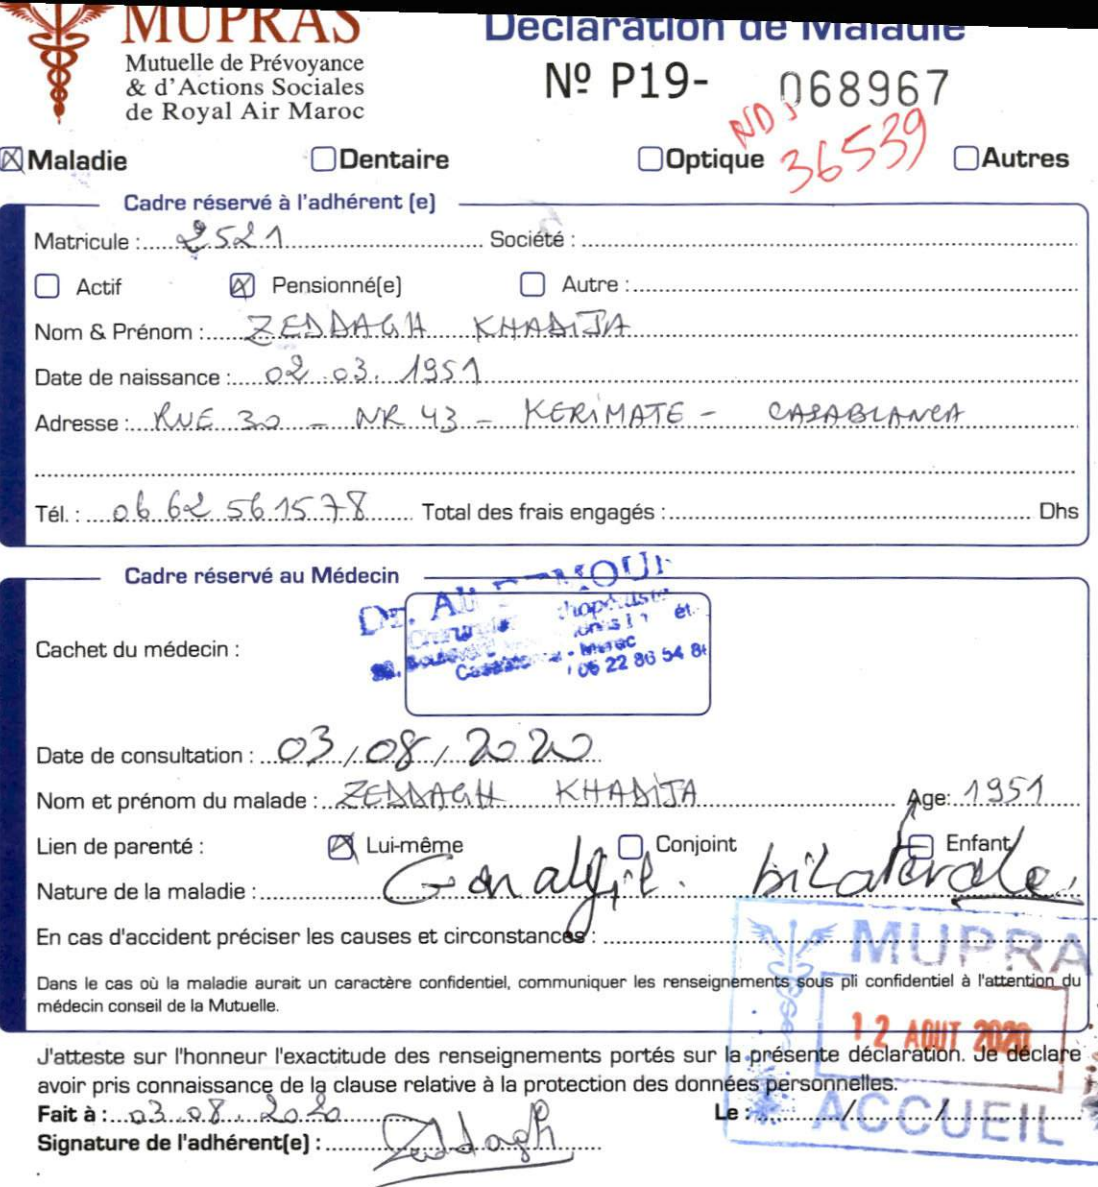 MUPRAS
Mutuelle de Prévoyance
& d'Actions Sociales
de Royal Air Maroc
Déclaration de Maladie
Nº P19- 068967
36539
Maladie Dentaire Optique Autres
Cadre réservé à l'adhérent (e)
Matricule : 2521 Société :
Actif Pensionné(e) Autre :
Nom & Prénom : ZEDDAGH KHADIJA
Date de naissance : 02.03.1951
Adresse : RUE 30 - NR 43 - KERIMATE - CASABLANCA
Tél. : 06 62 56 15 78 Total des frais engagés : Dhs
Cadre réservé au Médecin
Dr. Ali
Cachet du médecin :
06 22 86 54 8
Date de consultation : 03/08/2020
Nom et prénom du malade : ZEDDAGH KHADIJA Age: 1951
Lien de parenté : Lui-même Conjoint Enfant
Nature de la maladie : Gonalgie bilatérale
En cas d'accident préciser les causes et circonstances :
Dans le cas où la maladie aurait un caractère confidentiel, communiquer les renseignements sous pli confidentiel à l'attention du
médecin conseil de la Mutuelle.
MUPRA
12 AOUT 2020
ACCUEIL
J'atteste sur l'honneur l'exactitude des renseignements portés sur la présente déclaration. Je déclare
avoir pris connaissance de la clause relative à la protection des données personnelles.
Fait à : 03.08.2020 Le : / /
Signature de l'adhérent(e) : Zeddagh